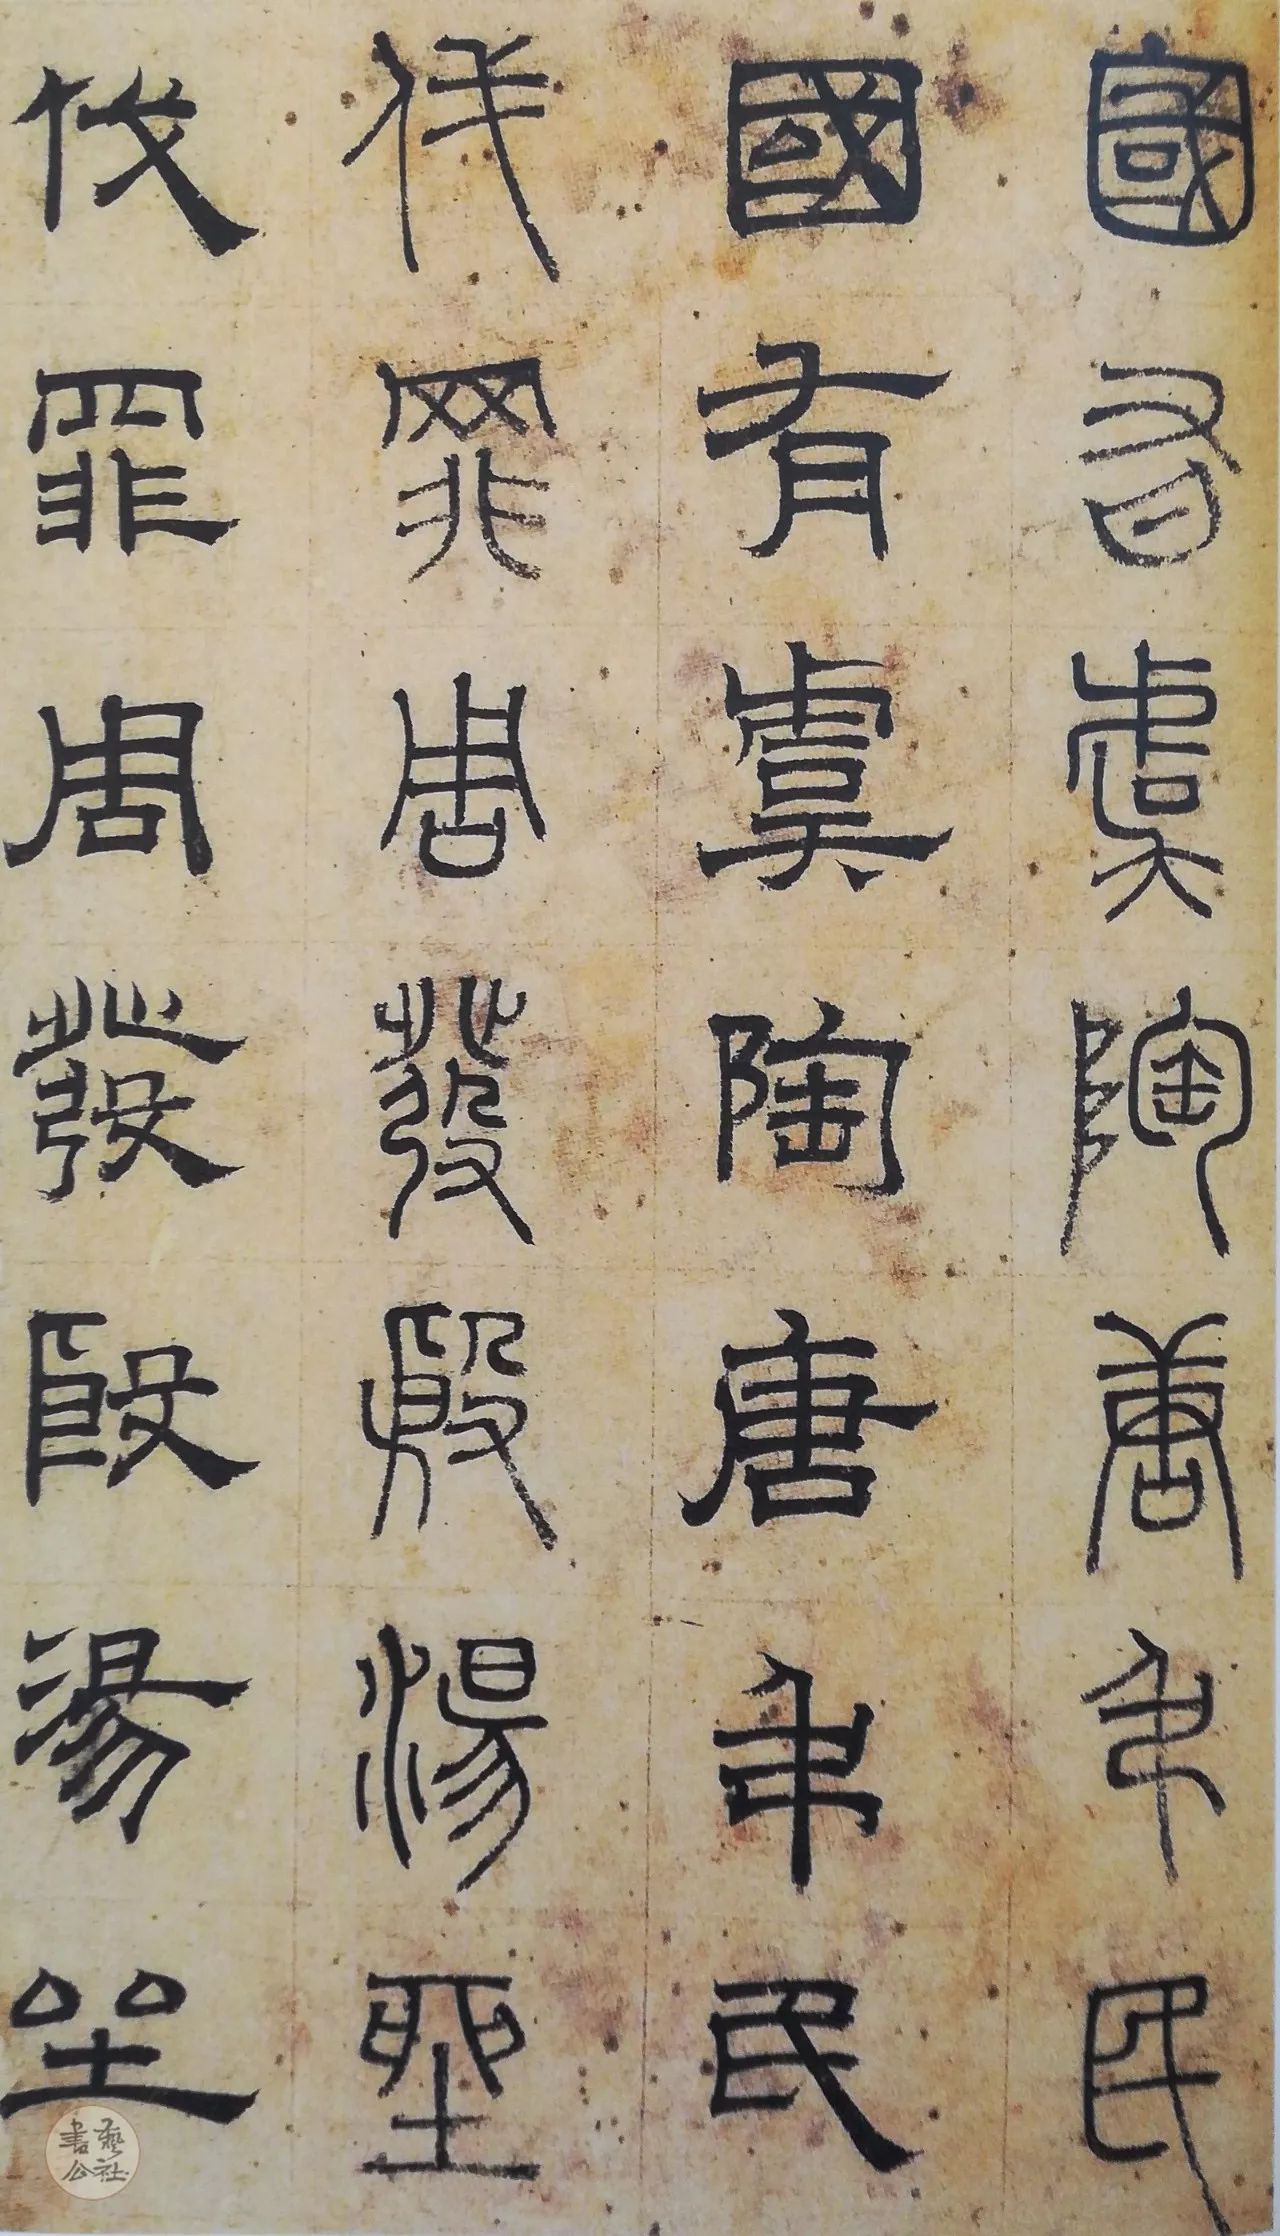 國有虞陶唐弔民
國有虞陶唐弔民
伐罪周發殷湯坐
伐罪周發殷湯坐
書藝
公社